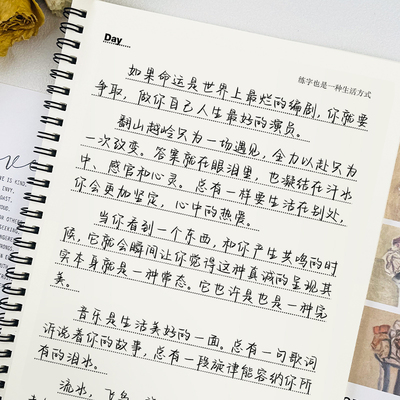 Day
练字也是一种生活方式
如果命运是世界上最烂的编剧，你就要
争取，做你自己人生最好的演员。
翻山越岭只为一场遇见，全力以赴只为
一次改变。答案就在眼泪里，也凝结在汗水
中、感官和心灵。总有一样要生活在别处，
你会更加坚定，心中的热爱。
当你看到一个东西，和你产生共鸣的时
候，它就会瞬间让你觉得这种真诚的呈现其
实本身就是一种常态。它也许是也是一种完
美。
音乐是生活美好的一面。总有一句歌词
诉说着你的故事，总有一段旋律能容纳你所
有的泪水。
流水，飞鸟